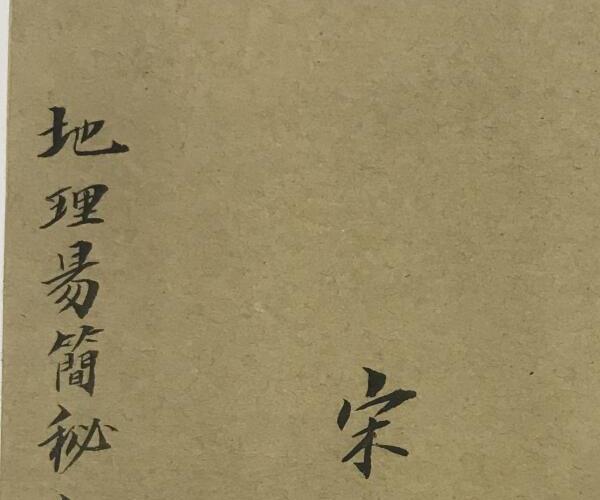 地理易簡秘
宋